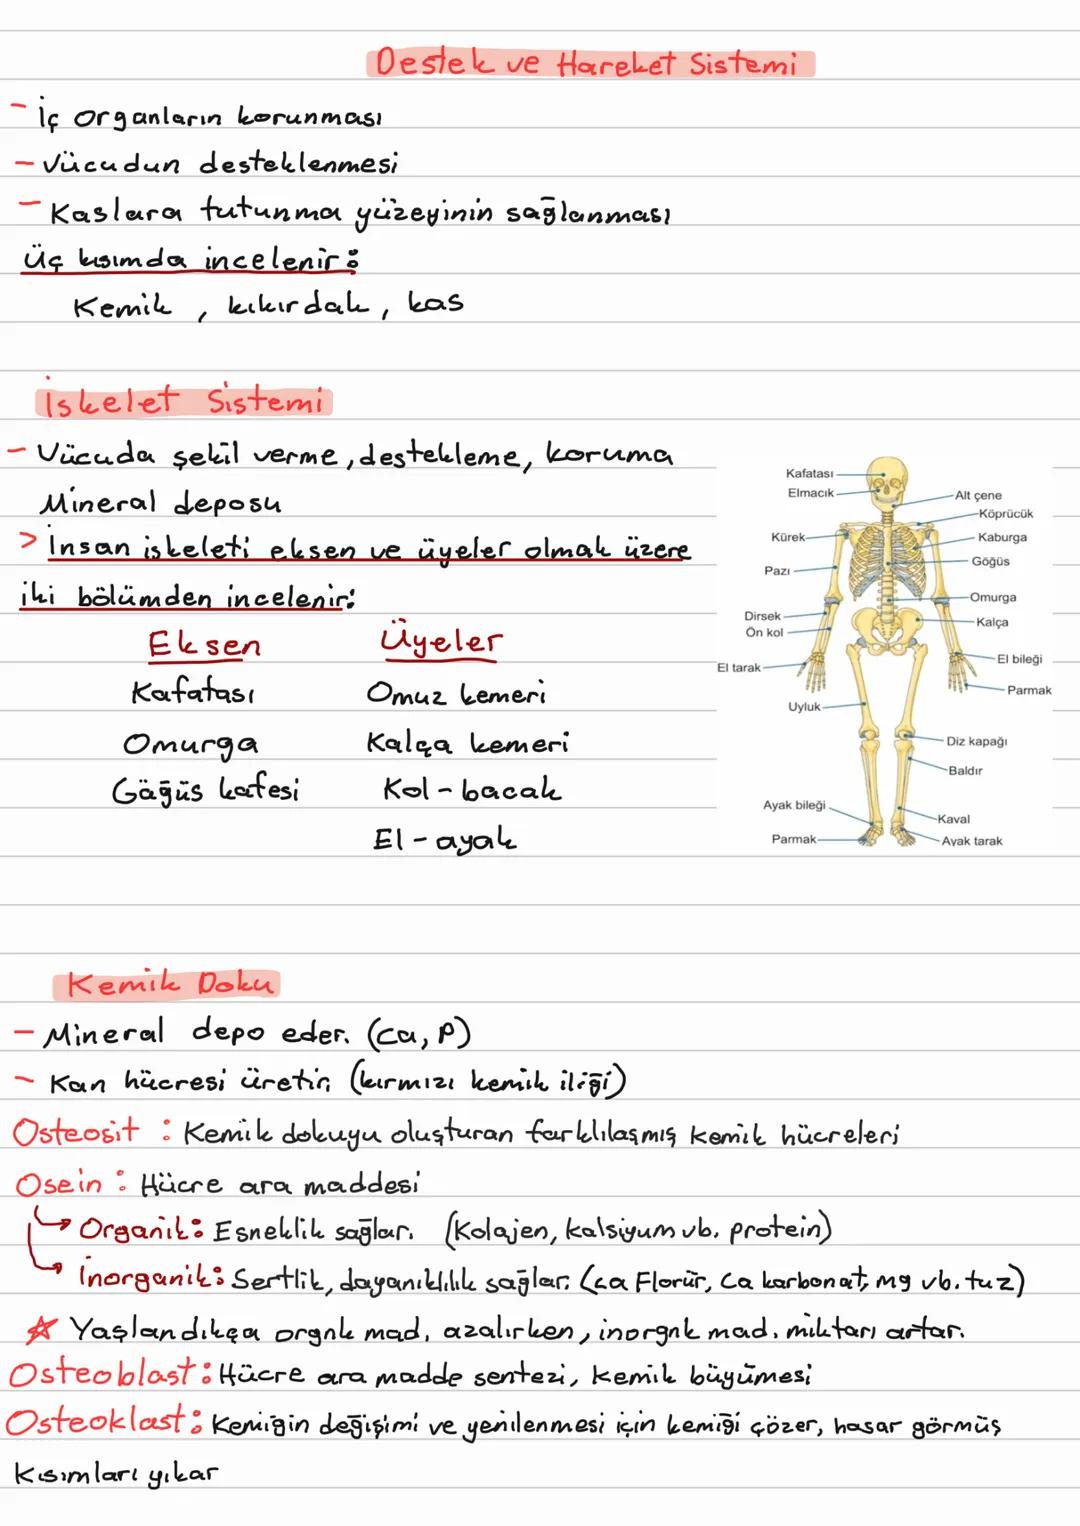 Destek ve Hareket Sistemi
- İç organların korunması
- Vücudun desteklenmesi
- Kaslara tutunma yüzeyinin sağlanması
Üç kısımda incelenir:
Kemik , kıkırdak , kas
İskelet Sistemi
- Vücuda şekil verme, destekleme, koruma
Mineral deposu
> İnsan iskeleti eksen ve üyeler olmak üzere
iki bölümden incelenir:
Eksen Üyeler
Kafatası Omuz kemeri
Omurga Kalça kemeri
Göğüs kafesi Kol - bacak
El - ayak
Kafatası
Elmacık
Alt çene
Köprücük
Kürek
Kaburga
Göğüs
Pazı
Omurga
Dirsek
Kalça
Ön kol
El bileği
El tarak
Parmak
Uyluk
Diz kapağı
Baldır
Ayak bileği
Kaval
Parmak
Ayak tarak
Kemik Doku
- Mineral depo eder. (Ca, P)
- Kan hücresi üretir. (kırmızı kemik iliği)
Osteosit : Kemik dokuyu oluşturan farklılaşmış kemik hücreleri
Osein : Hücre ara maddesi
→ Organik: Esneklik sağlar. (Kolajen, kalsiyum vb. protein)
→ İnorganik: Sertlik, dayanıklılık sağlar. (Ca Florür, Ca karbonat, Mg vb. tuz)
☆ Yaşlandıkça orgnk mad. azalırken, inorgnk mad. miktarı artar.
Osteoblast: Hücre ara madde sentezi, kemik büyümesi
Osteoklast: Kemiğin değişimi ve yenilenmesi için kemiği çözer, hasar görmüş
kısımları yıkar